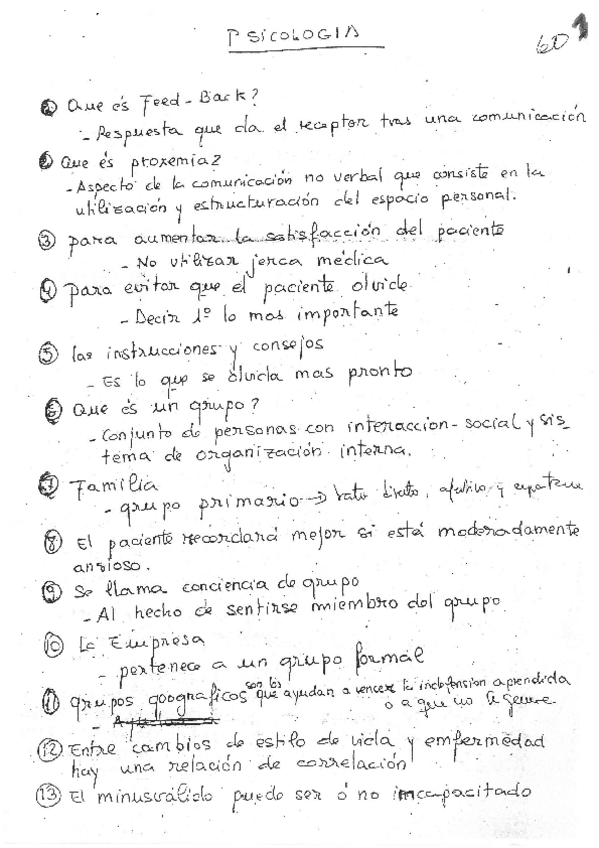 PSICOLOGIA
60 1
① Que és Feed-Back?
- Respuesta que da el receptor tras una comunicación
② Que és proxemia?
- Aspecto de la comunicación no verbal que consiste en la
utilización y estructuración del espacio personal.
③ para aumentar la satisfacción del paciente
- No utilizar jerca médica
④ para evitar que el paciente olvide
- Decir 1º lo mas importante
⑤ las instrucciones y consejos
- Es lo que se olvida mas pronto
⑥ Que és un grupo?
- Conjunto de personas con interaccion-social y sis_
tema de organización interna.
⑦ Familia
- grupo primario → trato directo, afectivo y
⑧ El paciente recordará mejor si está moderadamente
ansioso.
⑨ Se llama conciencia de grupo
- Al hecho de sentirse miembro del grupo
⑩ La Empresa
- pertenece a un grupo formál
⑪ grupos goograficos son los que ayudan a vencer la indefension aprendida
ó a que no se genere
⑫ Entre cambios de estilo de vida y emfermedad
hay una relación de correlación
⑬ El minusválido puede ser ó no imcapacitado